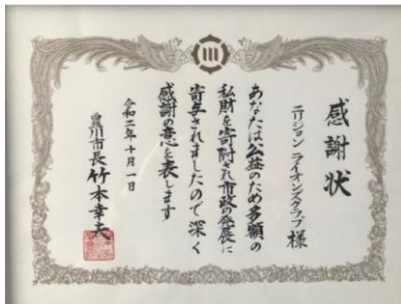 感謝状
ニリション ライオンズクラブ 様
あなたは公益のため多額の
私財を寄附され市政の発展に
寄与されましたので深く
感謝の意を表します
令和二年十月一日
豊川市長 竹本幸夫